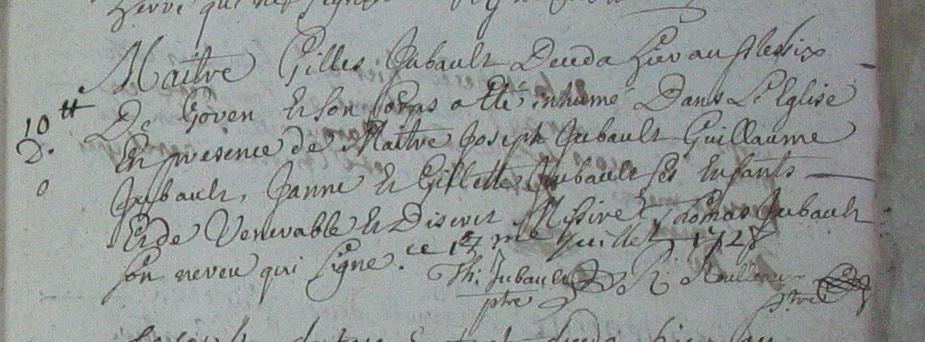 Herve qui ne signe
Maitre Gilles Jubault Deceda hier au plessix
De Goven Et son Corps a eté inhumé Dans L'Eglise
10 ₶
D.
o
En presence de Maitre Joseph Jubault Guillaume
Jubault, Janne Et Gillette Jubault ses Enfants
Et de Venerable Et Discret Missire Thomas Jubault
son neveu qui signe. ce me Juillet 1728
Th: Jubault
ptre
R
ptre